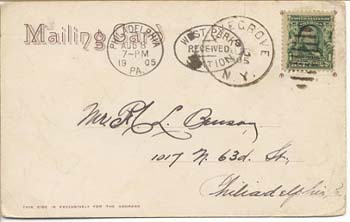 Mailing Card
PHILADELPHIA
AUG 8
7-PM
1905
PA.
WEST PARK
RECEIVED
STATION
GROVE
N.Y.
Mr. L.
1017 N. 63d. St.,
Philiadelphia
THIS SIDE IS EXCLUSIVELY FOR THE ADDRESS